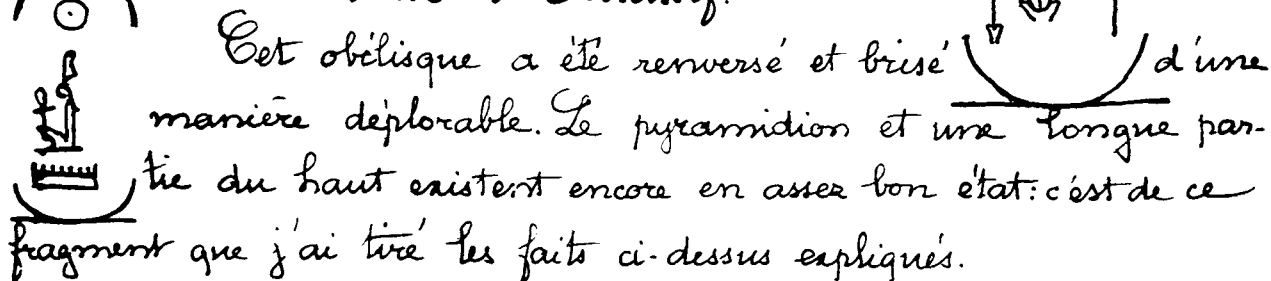 Cet obélisque a été renversé et brisé d'une
manière déplorable. Le pyramidion et une longue par-
tie du haut existent encore en assez bon état: c'est de ce
fragment que j'ai tiré les faits ci-dessus expliqués.